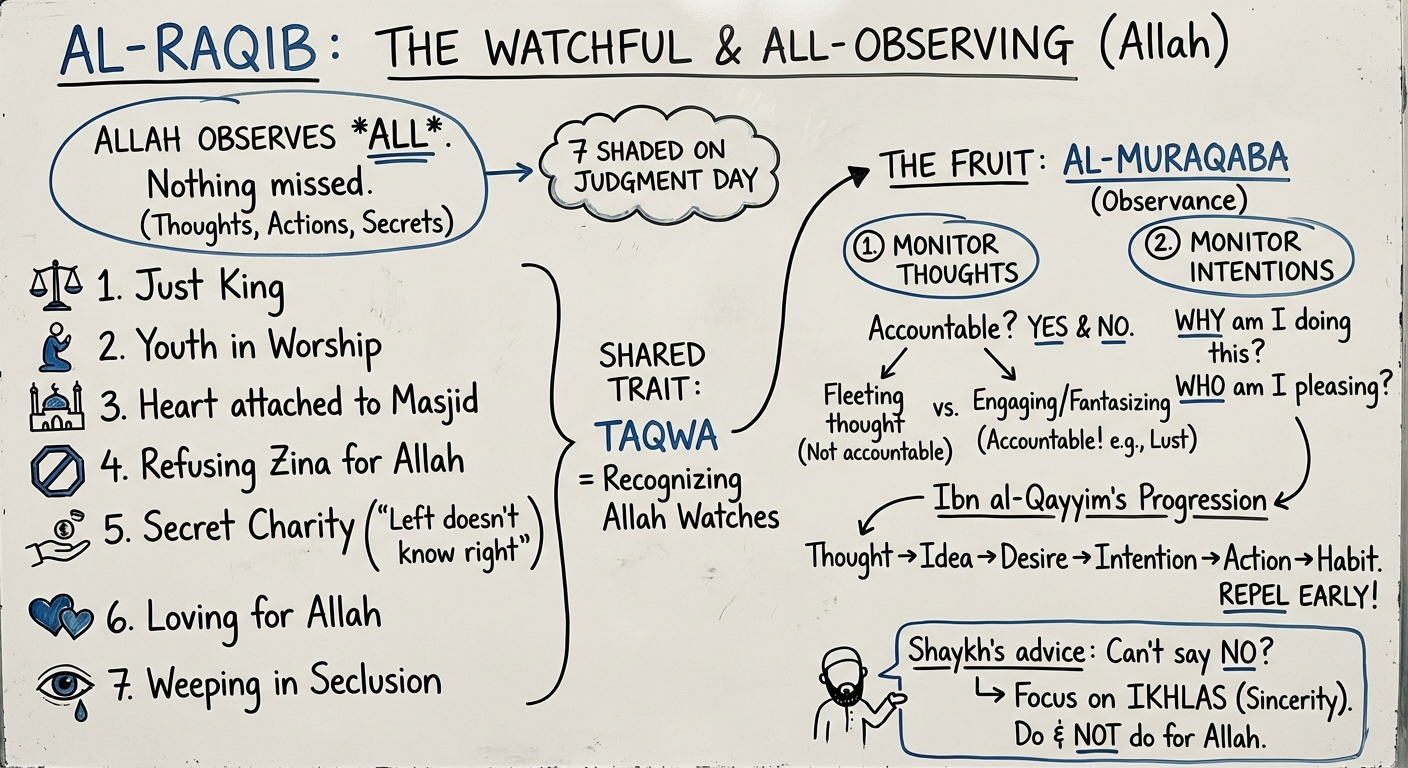 AL-RAQIB: THE WATCHFUL & ALL-OBSERVING (Allah)
ALLAH OBSERVES *ALL*.
Nothing missed.
(Thoughts, Actions, Secrets)
7 SHADED ON
JUDGMENT DAY
1. Just King
2. Youth in Worship
3. Heart attached to Masjid
4. Refusing Zina for Allah
5. Secret Charity ("Left doesn't
know right")
6. Loving for Allah
7. Weeping in Seclusion
SHARED
TRAIT:
TAQWA
= Recognizing
Allah Watches
THE FRUIT: AL-MURAQABA
(Observance)
1. MONITOR
THOUGHTS
Accountable? YES & NO.
Fleeting
thought
(Not accountable)
vs.
Engaging/Fantasizing
(Accountable! e.g., Lust)
2. MONITOR
INTENTIONS
WHY am I doing
this?
WHO am I pleasing?
Ibn al-Qayyim's Progression
Thought→Idea→Desire→Intention→Action→Habit.
REPEL EARLY!
Shaykh's advice: Can't say NO?
↳ Focus on IKHLAS (Sincerity).
Do & NOT do for Allah.